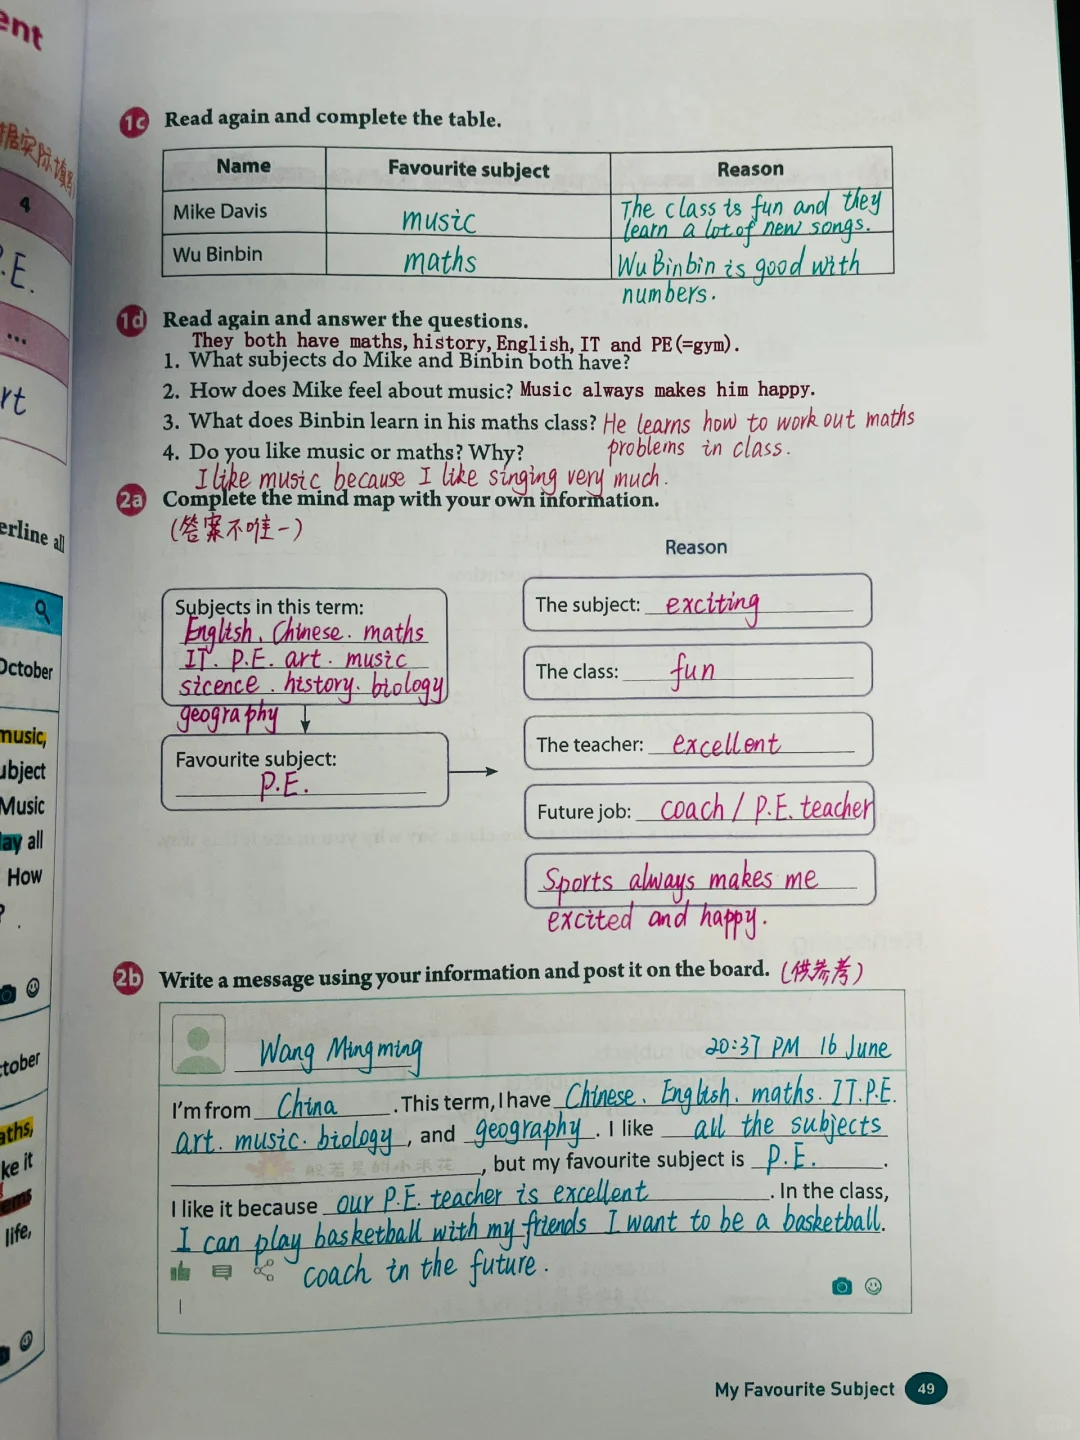 ent
据实际填写
4
P.E.
...
rt
erline all
October
music,
ubject
Music
lay all
How
?
.
ctober
aths,
ke it
ems
life,
1c Read again and complete the table.
Name Favourite subject Reason
Mike Davis music The class is fun and they
learn a lot of new songs.
Wu Binbin maths Wu Binbin is good with
numbers.
1d Read again and answer the questions.
They both have maths, history, English, IT and PE(=gym).
1. What subjects do Mike and Binbin both have?
2. How does Mike feel about music? Music always makes him happy.
3. What does Binbin learn in his maths class? He learns how to work out maths
4. Do you like music or maths? Why? problems in class.
I like music because I like singing very much.
2a Complete the mind map with your own information.
(答案不唯一)
Reason
Subjects in this term:
English. Chinese. maths
IT. P.E. art. music
sicence. history. biology
geography
Favourite subject:
P.E.
The subject: exciting
The class: fun
The teacher: excellent
Future job: coach / P.E. teacher
Sports always makes me
excited and happy.
2b Write a message using your information and post it on the board. (供参考)
Wang Mingming 20:37 PM 16 June
I'm from China. This term, I have Chinese. English. maths. IT.P.E.
art. music. biology, and geography. I like all the subjects
, but my favourite subject is P.E..
I like it because our P.E. teacher is excellent. In the class,
I can play basketball with my friends I want to be a basketball.
coach in the future.
My Favourite Subject 49